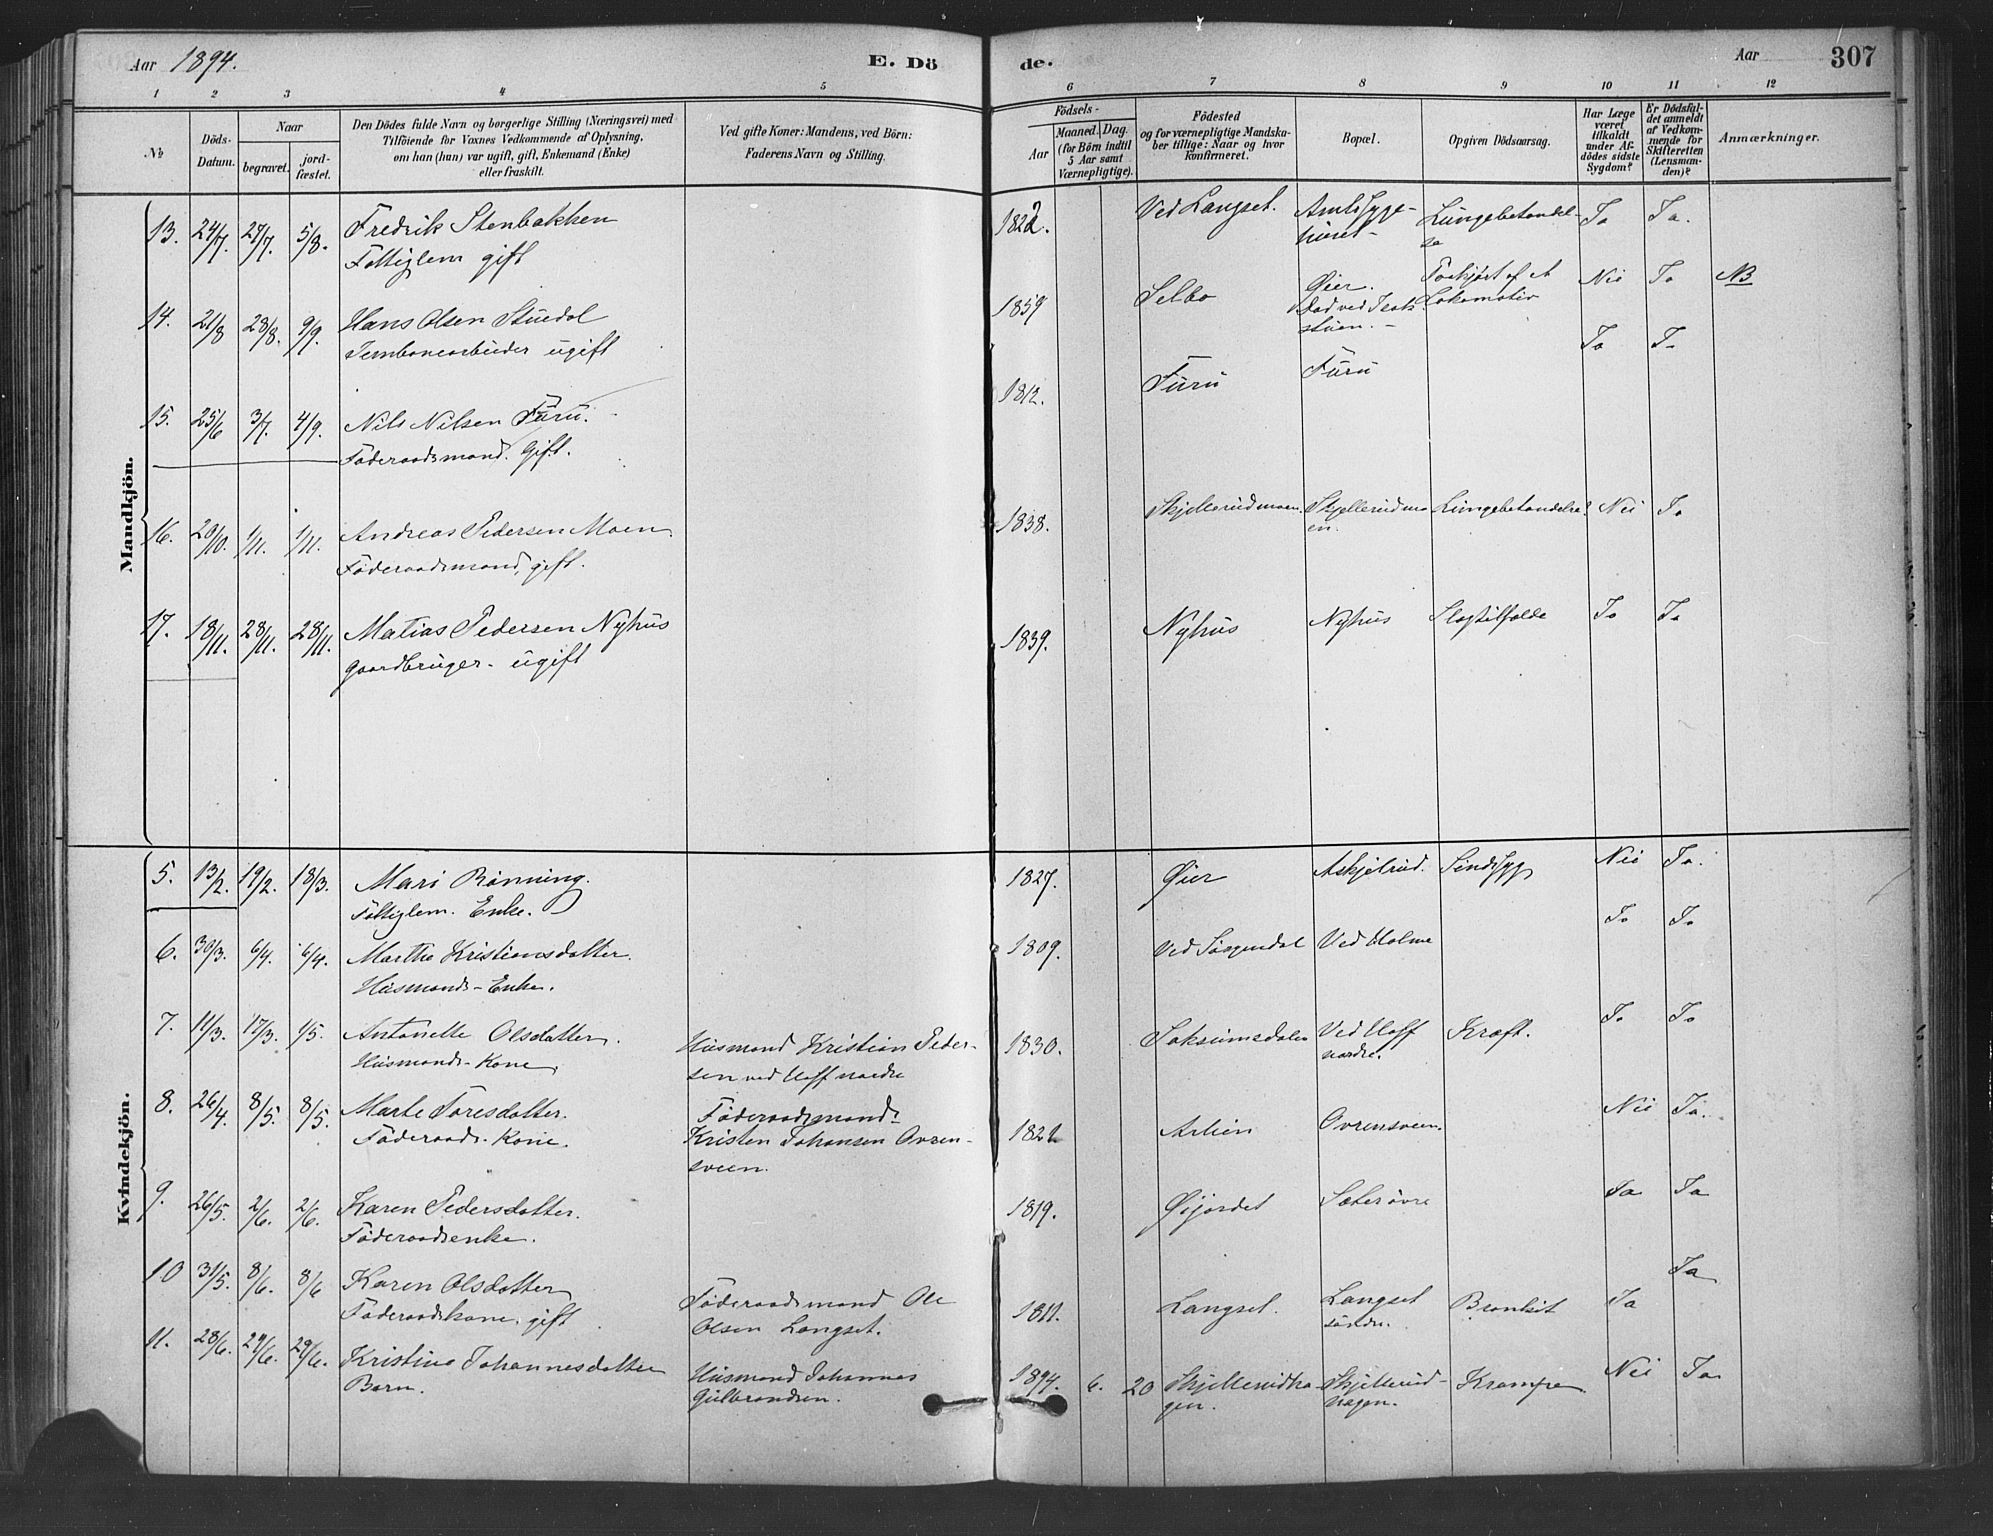 Aar 1894.
E. Dö
de.
Aar
307
1 2 3 4 5 6 7 8 9 10 11 12
№
Döds-
Datum.
Naar
begravet.
jord-
fæstet.
Den Dödes fulde Navn og borgerlige Stilling (Næringsvei) med
Tilföiende for Voxnes Vedkommende af Oplysning,
om han (hun) var ugift, gift, Enkemand (Enke)
eller fraskilt.
Ved gifte Koner: Mandens, ved Börn:
Faderens Navn og Stilling.
Födsels-
Aar
Maaned. Dag.
(for Börn indtil
5 Aar samt
Værnepligtige).
Födested
og for værnepligtige Mandska-
ber tillige: Naar og hvor
konfirmeret.
Bopæl.
Opgiven Dödsaarsag.
Har Læge
været
tilkaldt
under Af-
dödes sidste
Sygdom?
Er Dödsfal-
det anmeldt
af Vedkom-
mende for
Skifteretten
(Lensman-
den)?
Anmærkninger.
Mandkjön.
13. 24/7. 27/7. 5/8. Fredrik Stenbakken 1822. Ved Langset. Amtssyge- Lungebetændel- Ja Ja.
Fattiglem gift huset- se
14. 21/8 28/8. 9/9. Hans Olsen Stuedal 1859 Selbo Øier. Forkjørt af et Nei Ja NB
Jernbanearbeider ugift Død ved Lokomotiv
15. 25/6 3/7. 4/9. Nils Nilsen Furu. 1812. Furu Furu Ja Ja
Føderaadsmand. Gift.
16. 20/10. 1/11. 1/11. Andreas Pedersen Moen 1838. Skjellerudmoen. Skjellerudmo- Lungebetændelse. Nei Ja
Føderaadsmand, gift. en.
17. 18/11. 28/11. 28/11. Matias Pedersen Nyhus 1839. Nyhus Nyhus Slagtilfælde Ja Ja
Gaardbruger. ugift
Kvindekjön.
5. 13/2. 19/2. 18/3. Mari Rønning. 1827. Øier Askjelrud. Sindssyg Nei Ja.
Fattiglem. Enke.
6. 30/3. 6/4. 6/4. Marthe Kristiansdatter. 1809. Ved Ved Holme Ja Ja
Husmands-Enke.
7. 11/3. 17/3. 1/5. Antonette Olsdatter. Husmand Kristian Peder- 1830. Saksumsdalen Ved Hoff Kræft. Ja Ja
Husmands-Kone. sen ved Hoff nordre nordre.
8. 26/4. 8/5. 8/5. Marte Toresdatter. Føderaadsmand 1821 Ovrensveen. Nei Ja.
Føderaads-Kone. Kristen Johansen Ovren-
sveen.
9. 26/5. 2/6. 2/6. Karen Pedersdatter. 1819. Øijordet Sæter øvre Ja Ja
Føderaadsenke.
10 31/5. 8/6. 8/6 Karen Olsdatter Føderaadsmand Ole 1811. Langset. Langset Bronkit Ja Ja
Føderaadskone, gift Olsen Langset. søndre.
11. 28/6. 29/6. 29/6. Kristine Johannesdatter Husmand Johannes 1894. 6. 20 Skjellerudha- Skjellerud- Krampe Nei Ja
Barn. Gulbrandsen. gen. hagen.